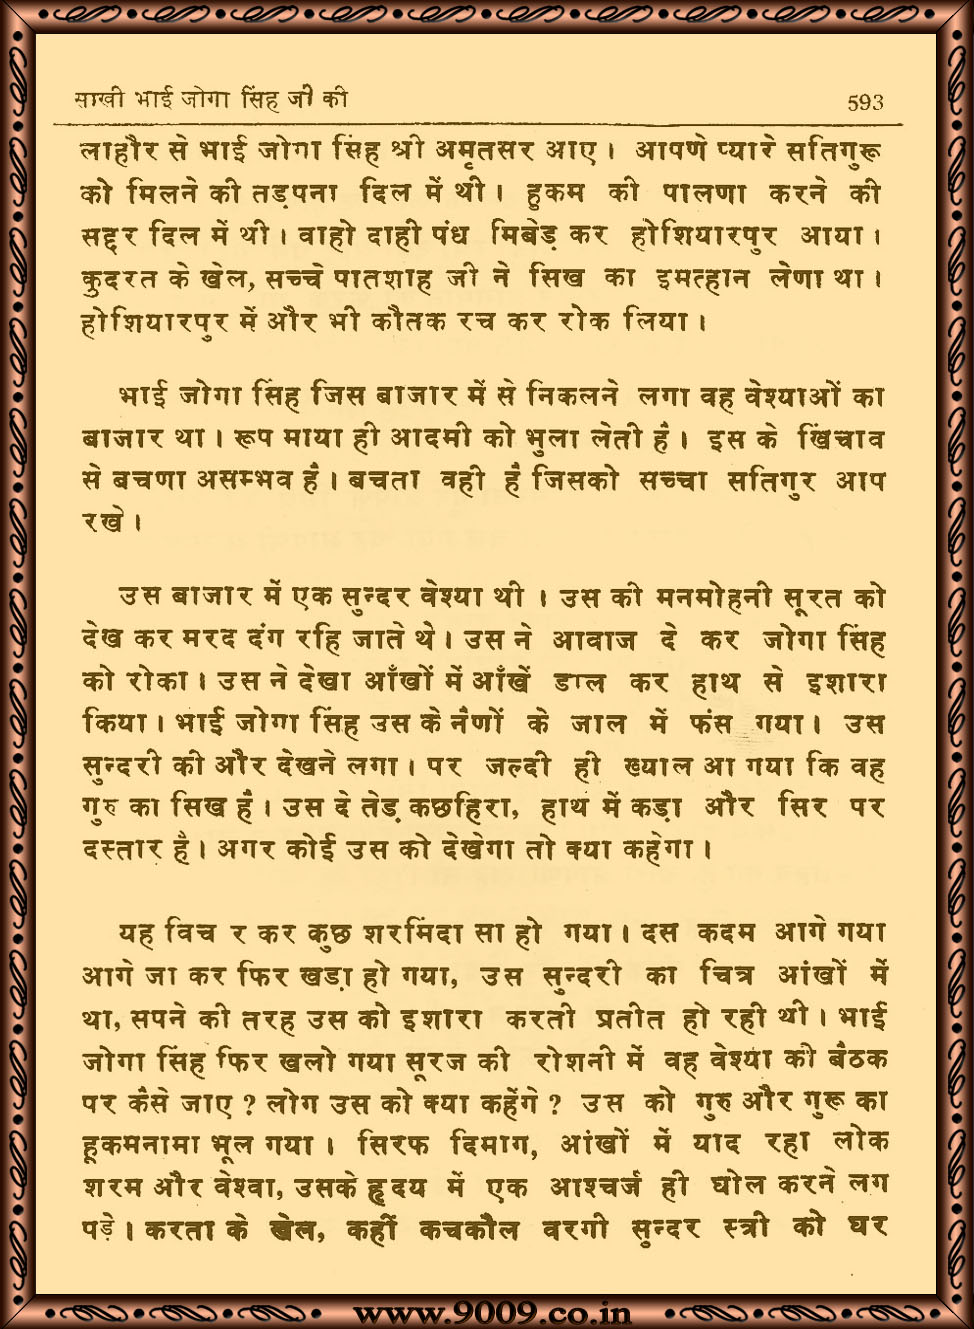 साखी भाई जोगा सिंह जी की 593
लाहौर से भाई जोगा सिंह श्री अमृतसर आए। आपणे प्यारे सतिगुरू
को मिलने की तड़पना दिल में थी। हुकम की पालणा करने की
सद्दर दिल में थी। वाहो दाही पंध मिबेड़ कर होशियारपुर आया।
कुदरत के खेल, सच्चे पातशाह जी ने सिख का इमत्हान लेणा था।
होशियारपुर में और भी कौतक रच कर रोक लिया।
भाई जोगा सिंह जिस बाजार में से निकलने लगा वह वेश्याओं का
बाजार था। रूप माया ही आदमी को भुला लेती है। इस के खिंचाव
से बचणा असम्भव है। बचता वही है जिसको सच्चा सतिगुर आप
रखे।
उस बाजार में एक सुन्दर वेश्या थी। उस की मनमोहनी सूरत को
देख कर मरद दंग रहि जाते थे। उस ने आवाज दे कर जोगा सिंह
को रोका। उस ने देखा आँखों में आँखें डाल कर हाथ से इशारा
किया। भाई जोगा सिंह उस के नैणों के जाल में फंस गया। उस
सुन्दरी की और देखने लगा। पर जल्दी ही ख्याल आ गया कि वह
गुरु का सिख है। उस दे तेड़ कछहिरा, हाथ में कड़ा और सिर पर
दस्तार है। अगर कोई उस को देखेगा तो क्या कहेगा।
यह विच र कर कुछ शरमिंदा सा हो गया। दस कदम आगे गया
आगे जा कर फिर खड़ा हो गया, उस सुन्दरी का चित्र आंखों में
था, सपने की तरह उस को इशारा करती प्रतीत हो रही थी। भाई
जोगा सिंह फिर खलो गया सूरज की रोशनी में वह वेश्या की बैठक
पर कैसे जाए ? लोग उस को क्या कहेंगे ? उस को गुरु और गुरू का
हूकमनामा भूल गया। सिरफ दिमाग, आंखों में याद रहा लोक
शरम और वेश्वा, उसके हृदय में एक आश्चर्ज ही घोल करने लग
पड़े। करता के खेल, कहीं कचकौल वरगी सुन्दर स्त्री को घर
www.9009.co.in